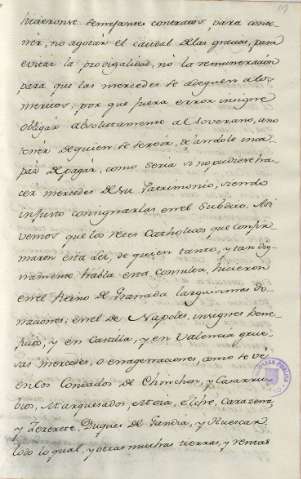 hicieronse semejantes contratos, para conte-
ner, no agotar el caudal de las gracias, para
evitar la prodigalidad, no la remuneracion
para que las mercedes se adequen a los
meritos, por que fuera error insigne
obligar absolutamente al soverano, a no
tener de quien se servir, dejandole inca-
paz de pagar, como seria si no pudiere ha-
cer mercedes de su Patrimonio, siendo
injusto consignarlas en el Subdito. Asi
vemos que los Reyes Catholicos que confir-
maron esta Lei, de quien tanto, y tan dig-
namente habla esta Consulta, hicieron
en el Reino de Granada larguissimas do-
naciones, en el de Napoles, insignes
y en Castilla, y en Valencia grue-
sas mercedes, o enagenaciones, como se ve
en los Condados de Chinchon, y Casarru-
bios, Marquesados, Elche,
y Duques de Gandia, y Huescar
todo lo qual, y otras muchas tierras, y rentas